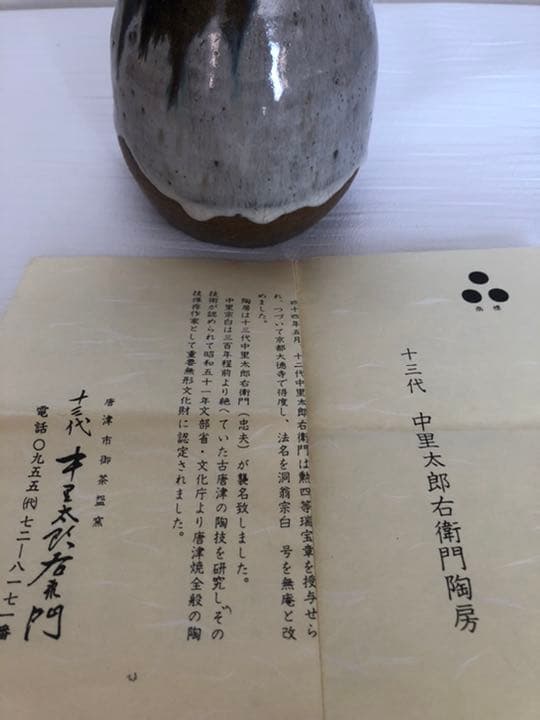 十三代　中里太郎右衛門陶房
四十四年五月　十二代中里太郎右衛門は勲四等瑞宝章を授与せら
れ、つづいて京都大徳寺で得度し、法名を洞翁宗白　号を無庵と改
めました。
陶房は十三代中里太郎右衛門（忠夫）が襲名致しました。
中里宗白は三百年程前より絶へていた古唐津の陶技を研究し、その
技術が認められて昭和五十一年文部省・文化庁より唐津焼全般の陶
技保存作家として重要無形文化財に認定されました。
唐津市御茶盌窯
十三代　中里太郎右衛門
電話〇九五五（代）七二―八一七一番